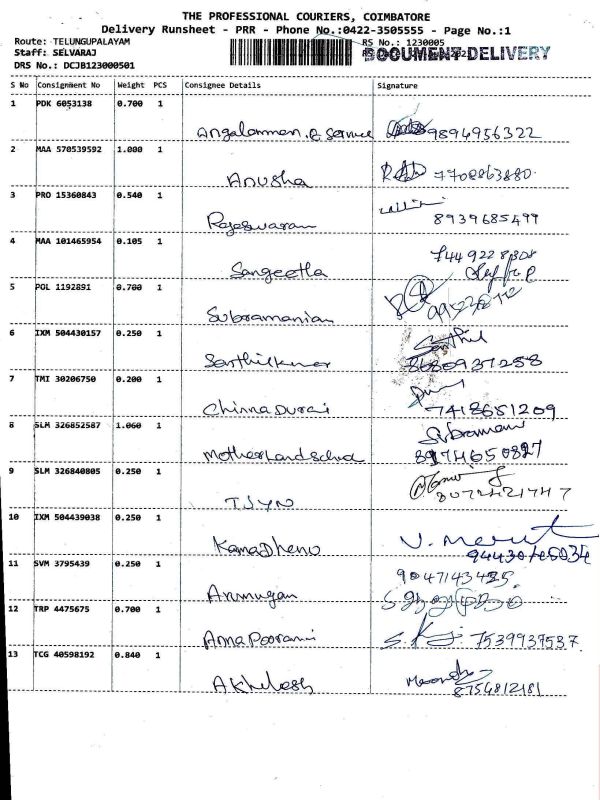 THE PROFESSIONAL COURIERS, COIMBATORE
Delivery Runsheet - PRR - Phone No.:0422-3505555 - Page No.:1
Route: TELUNGUPALAYAM RS No.: 1230005
Staff: SELVARAJ DOCUMENT DELIVERY
DRS No.: DCJB123000501
S No Consignment No Weight PCS Consignee Details Signature
1 PDK 6053138 0.700 1
Angalamman. & Service 9894956322
2 MAA 570539592 1.000 1
Anusha 7708863880.
3 PRO 15360843 0.540 1
Rajeswaran 8939685499
4 MAA 101465954 0.105 1
Sangeetha 744 922 8308
5 POL 1192891 0.700 1
Subramanian
6 IXM 504430157 0.250 1
Santhilkumar Santhil
8680937258
7 TMI 30206750 0.200 1
Chinna Durai 7418651209
8 SLM 326852587 1.060 1
Subramani
Motherland 8974650827
9 SLM 326840805 0.250 1
TJYN 8072421747
10 IXM 504439038 0.250 1
KamaDhenu
11 SVM 3795439 0.250 1
9047143435.
Arumugan
12 TRP 4475675 0.700 1
AnnaPoorani 7539937537
13 TCG 40598192 0.840 1
Akhilesh 8754812181